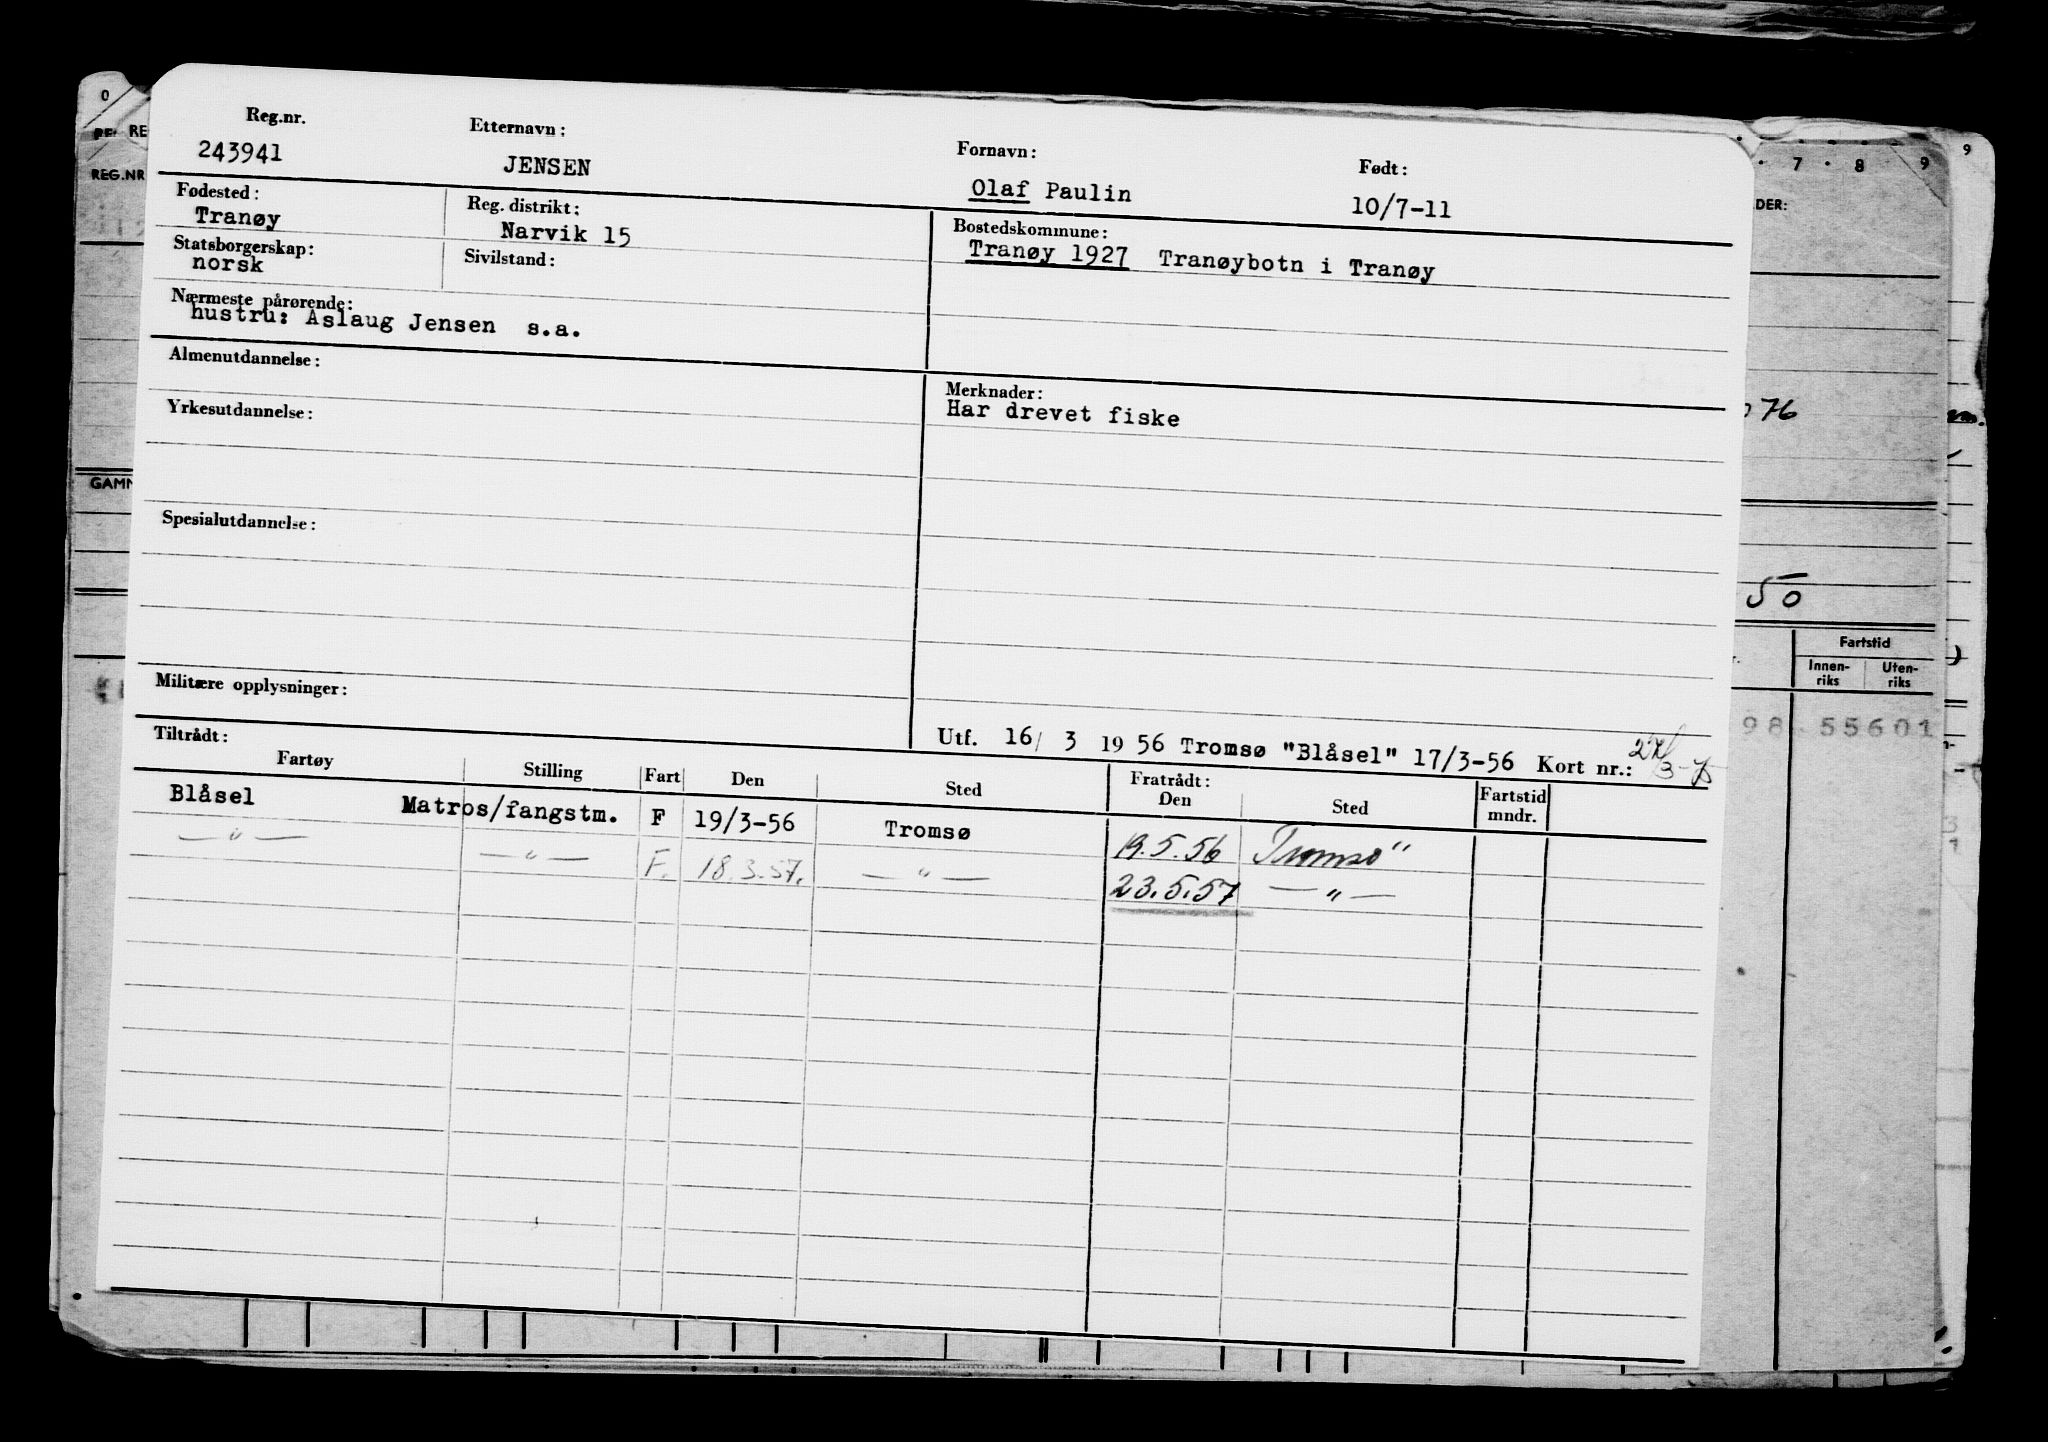 Reg.nr. Etternavn: Fornavn: Født:
243941 JENSEN Olaf Paulin 10/7-11
Fødested: Reg. distrikt: Bostedskommune:
Tranøy Narvik 15 Tranøy 1927 Tranøybotn i Tranøy
Statsborgerskap: Sivilstand:
norsk
Nærmeste pårørende:
hustru: Aslaug Jensen s.a.
Almenutdannelse: Merknader:
Har drevet fiske
Yrkesutdannelse:
Spesialutdannelse:
Militære opplysninger:
Utf. 16/ 3 1956 Tromsø "Blåsel" 17/3-56 Kort nr.:
Tiltrådt: Fratrådt:
Fartøy Stilling Fart Den Sted Den Sted Fartstid mndr.
Blåsel Matros/fangstm. F 19/3-56 Tromsø 19.5.56 Tromsø
— " — — " — F. 18.3.57. — " — 23.5.57 — " —
0
RE
REG.NR
GAMN
7 . 8 . 9
9
DER:
76
50
Fartstid
Innen-riks Uten-riks
98 55601